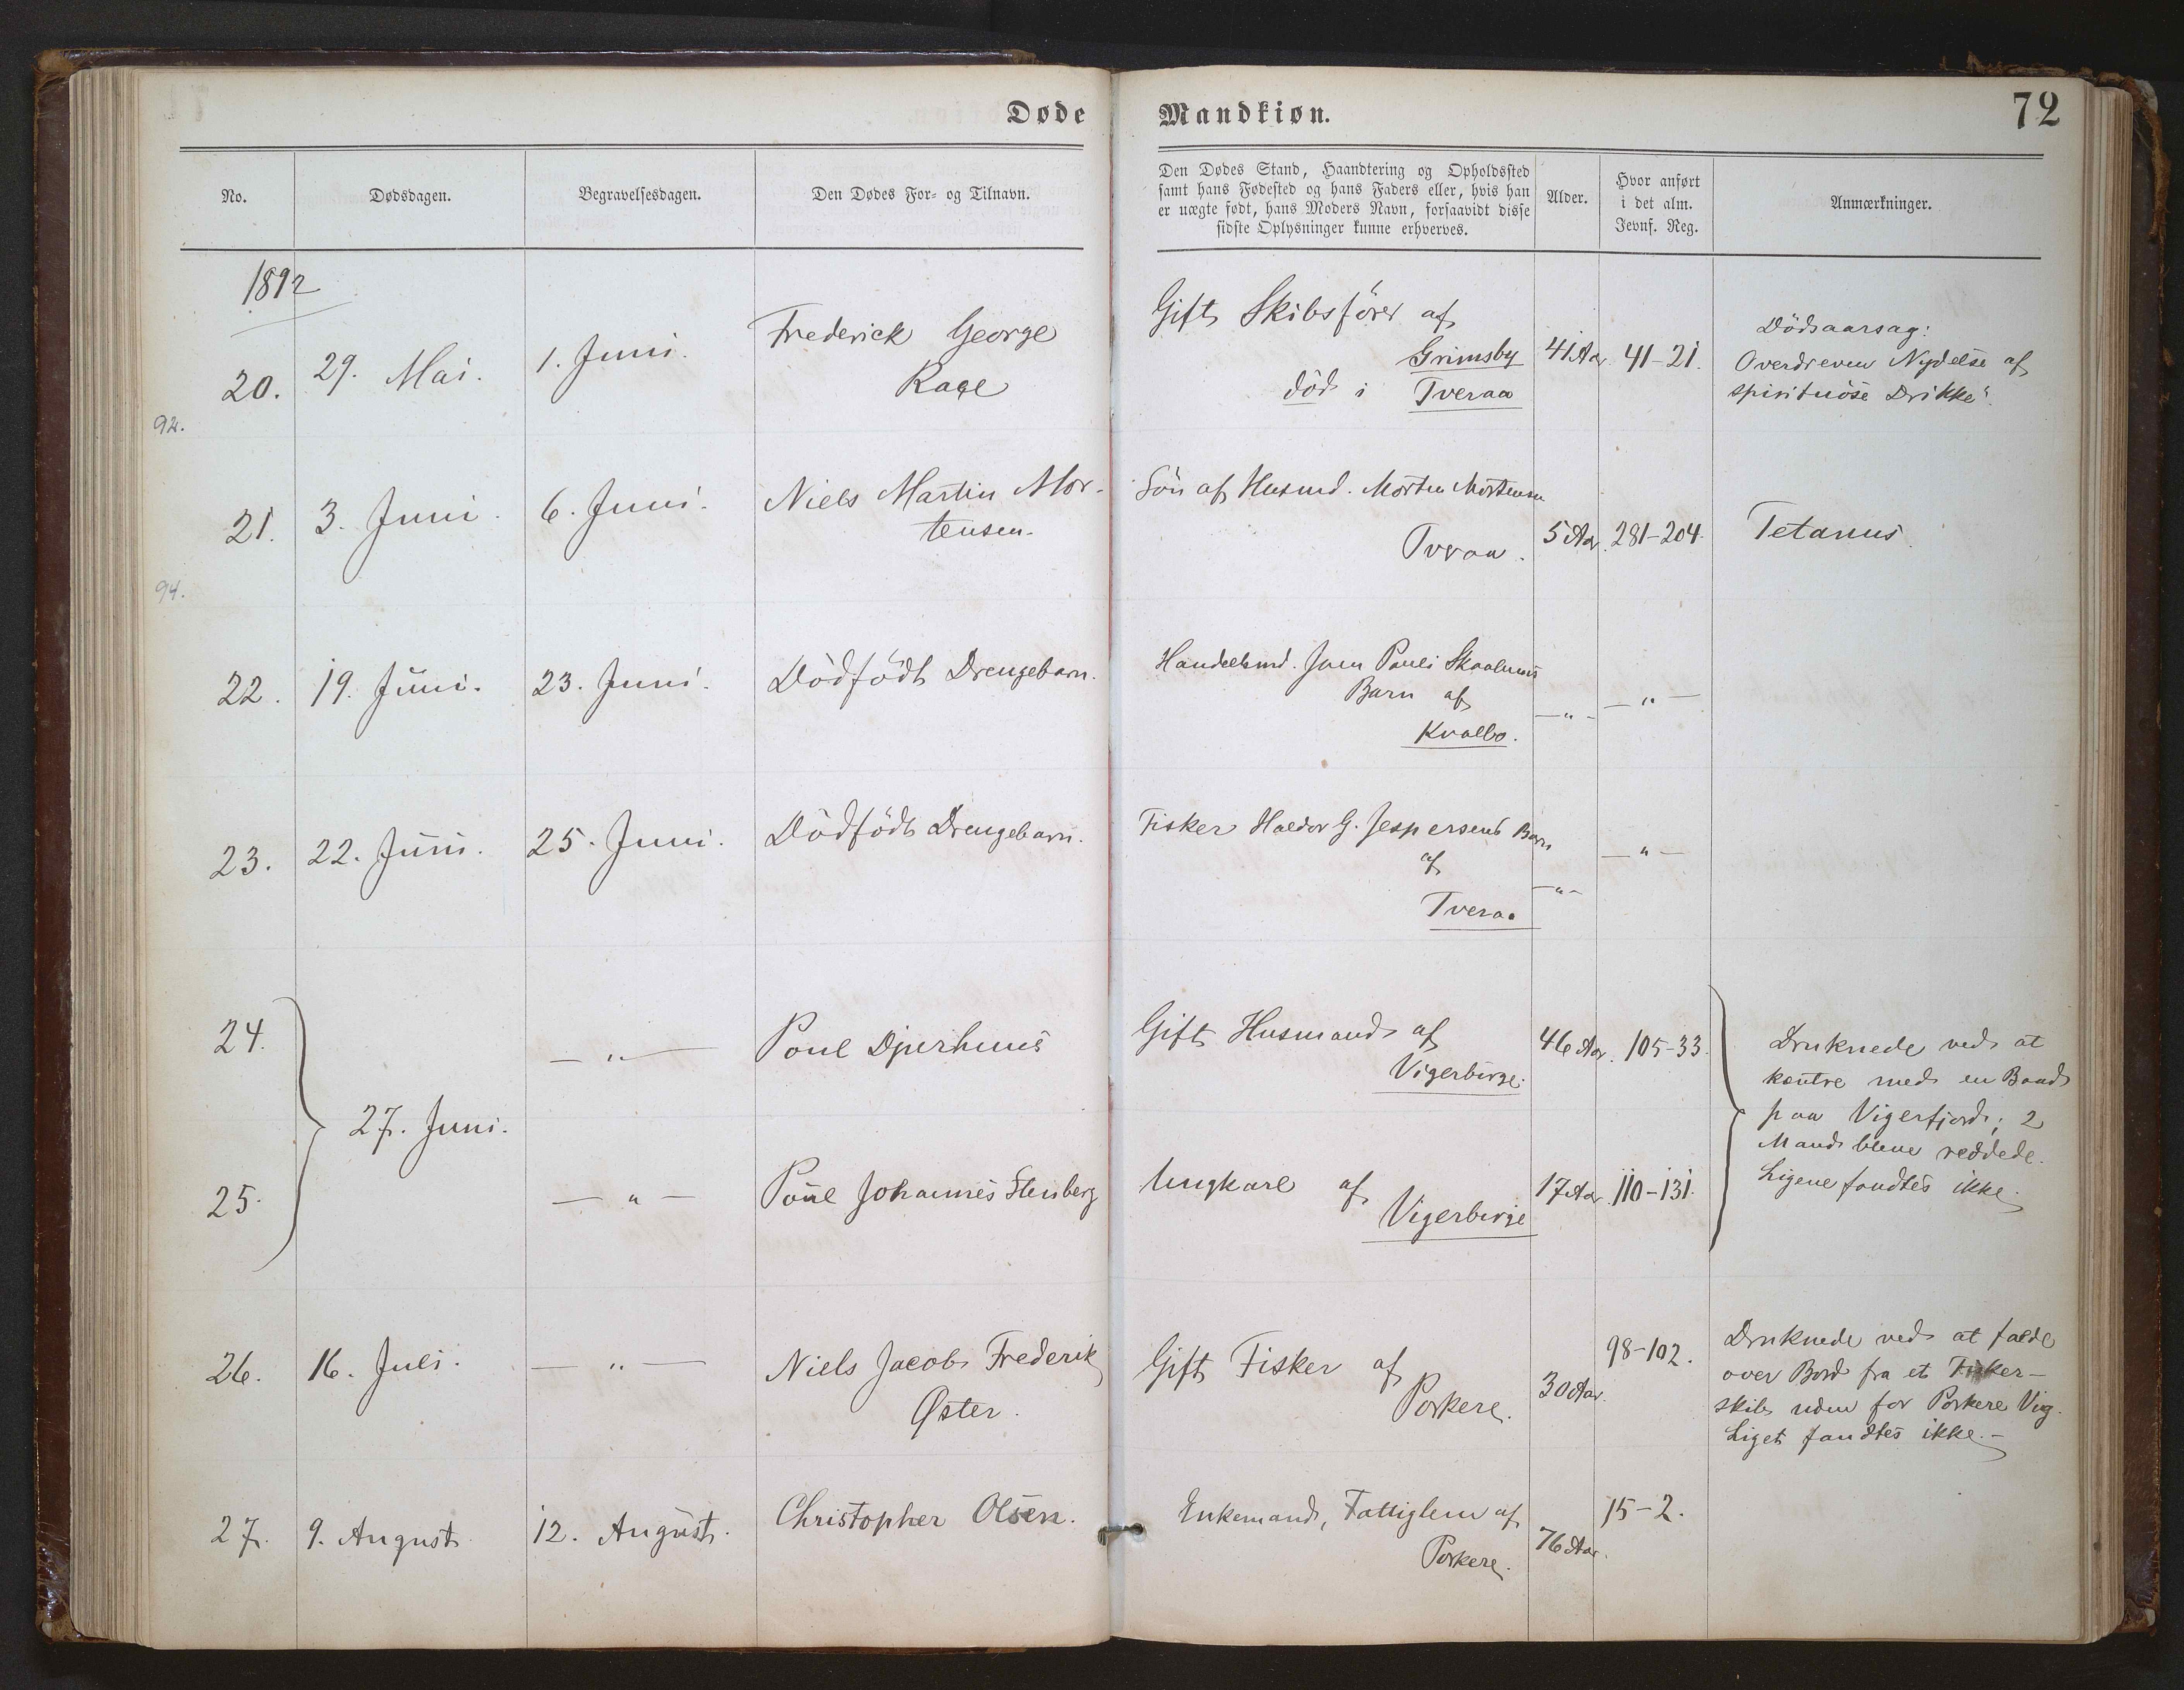 Døde Mandkiøn.
72
No.
Dødsdagen.
Begravelsesdagen.
Den Dødes For- og Tilnavn.
Den Dødes Stand, Haandtering og Opholdssted
samt hans Fødested og hans Faders eller, hvis han
er uægte født, hans Moders Navn, forsaavidt disse
sidste Oplysninger kunne erhverves.
Alder.
Hvor anført
i det alm.
Jevnf. Reg.
Anmærkninger.
1892
20.
29. Mai.
1. Juni.
Frederick George
Race
Gift Skibsfører af
Grimsby
död i Tveraa
41 Aar
41-21.
Dödsaarsag:
Overdreven Nydelse af
spirituöse Drikke"
92.
21.
3. Juni.
6. Juni.
Niels Martin Mor-
tensen.
Sön af Husmd. Morten Mortensen
Tveraa.
5 Aar.
281-204.
Tetanus.
94.
22.
19. Juni.
23. Juni.
Dödfödt Drengebarn.
Handelsmd. Joen Pauli Skaalums
Barn af
Kvalbo.
—"—
—"—
23.
22. Juni.
25. Juni.
Dödfödt Drengebarn.
Fisker Haldor G. Jespersens Barn
af
Tveraa
—"—
—"—
24.
27. Juni.
—"—
Poul Djurhuus
Gift Husmand af
Vigerbirge.
46 Aar.
105-33.
Druknede ved at
kæntre med en Baad
paa Vigerfjord; 2
Mand bleve reddede.
Ligene fandtes ikke.
25.
—"—
Poul Johannes Stenberg
Ungkarl af
Vigerbirge
17 Aar.
110-131.
26.
16. Juli.
—"—
Niels Jacob Frederik
Øster.
Gift Fisker af
Porkere.
30 Aar.
98-102.
Druknede ved at falde
over Bord fra et Fisker-
skib uden for Porkere Vig.
Liget fandtes ikke.-
27.
9. August
12. August.
Christopher Olsen.
Enkemand, Fattiglem af
Porkere.
76 Aar.
15-2.